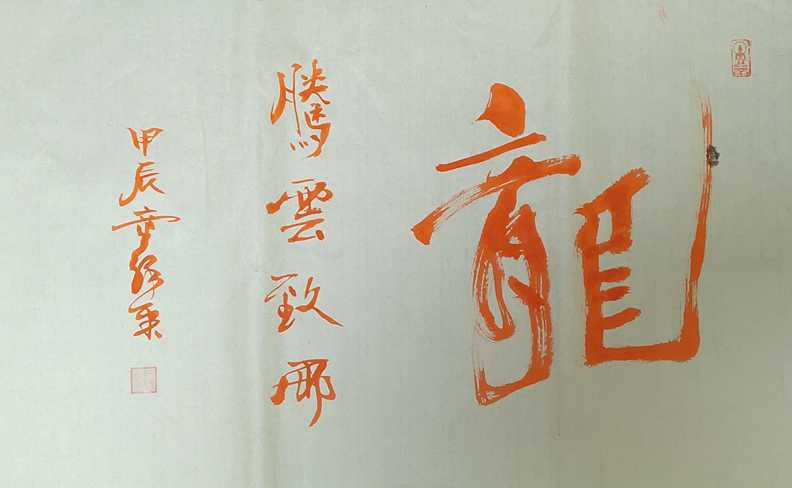 龍
騰雲致雨
甲辰